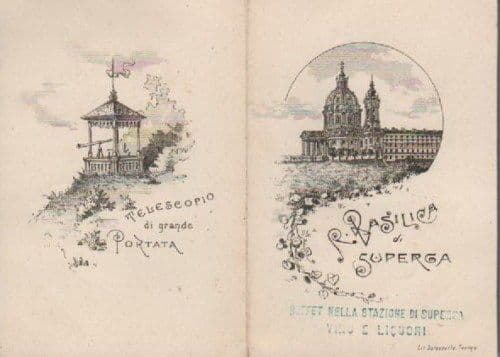 TELESCOPIO
di grande
PORTATA
R. BASILICA
di
SUPERGA
BUFFET NELLA STAZIONE DI SUPERGA
VINO E LIQUORI
Lit. Salussolia, Torino